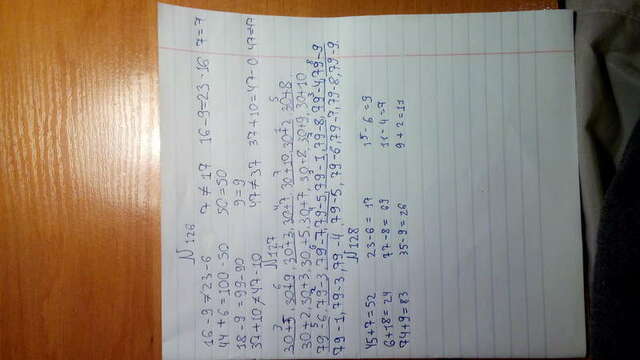 N 126
16 - 9 ≠ 23 - 6 7 ≠ 17 16 - 9 = 23 - 16 7 = 7
44 + 6 = 100 - 50 50 = 50
18 - 9 = 99 - 90 9 = 9
37 + 10 ≠ 47 - 10 47 ≠ 37 37 + 10 = 47 - 0 47 = 47
N 127
30 + 5, 30 + 9, 30 + 3, 30 + 7, 30 + 10, 30 + 2, 30 + 8
30 + 2, 30 + 3, 30 + 5, 30 + 7, 30 + 8, 30 + 9, 30 + 10
79 - 6, 79 - 3, 79 - 7, 79 - 5, 79 - 1, 79 - 8, 79 - 4, 79 - 9
79 - 1, 79 - 3, 79 - 4, 79 - 5, 79 - 6, 79 - 7, 79 - 8, 79 - 9
N 128
45 + 7 = 52 23 - 6 = 17 15 - 6 = 9
6 + 18 = 24 77 - 8 = 69 11 - 4 = 7
74 + 9 = 83 35 - 9 = 26 9 + 2 = 11